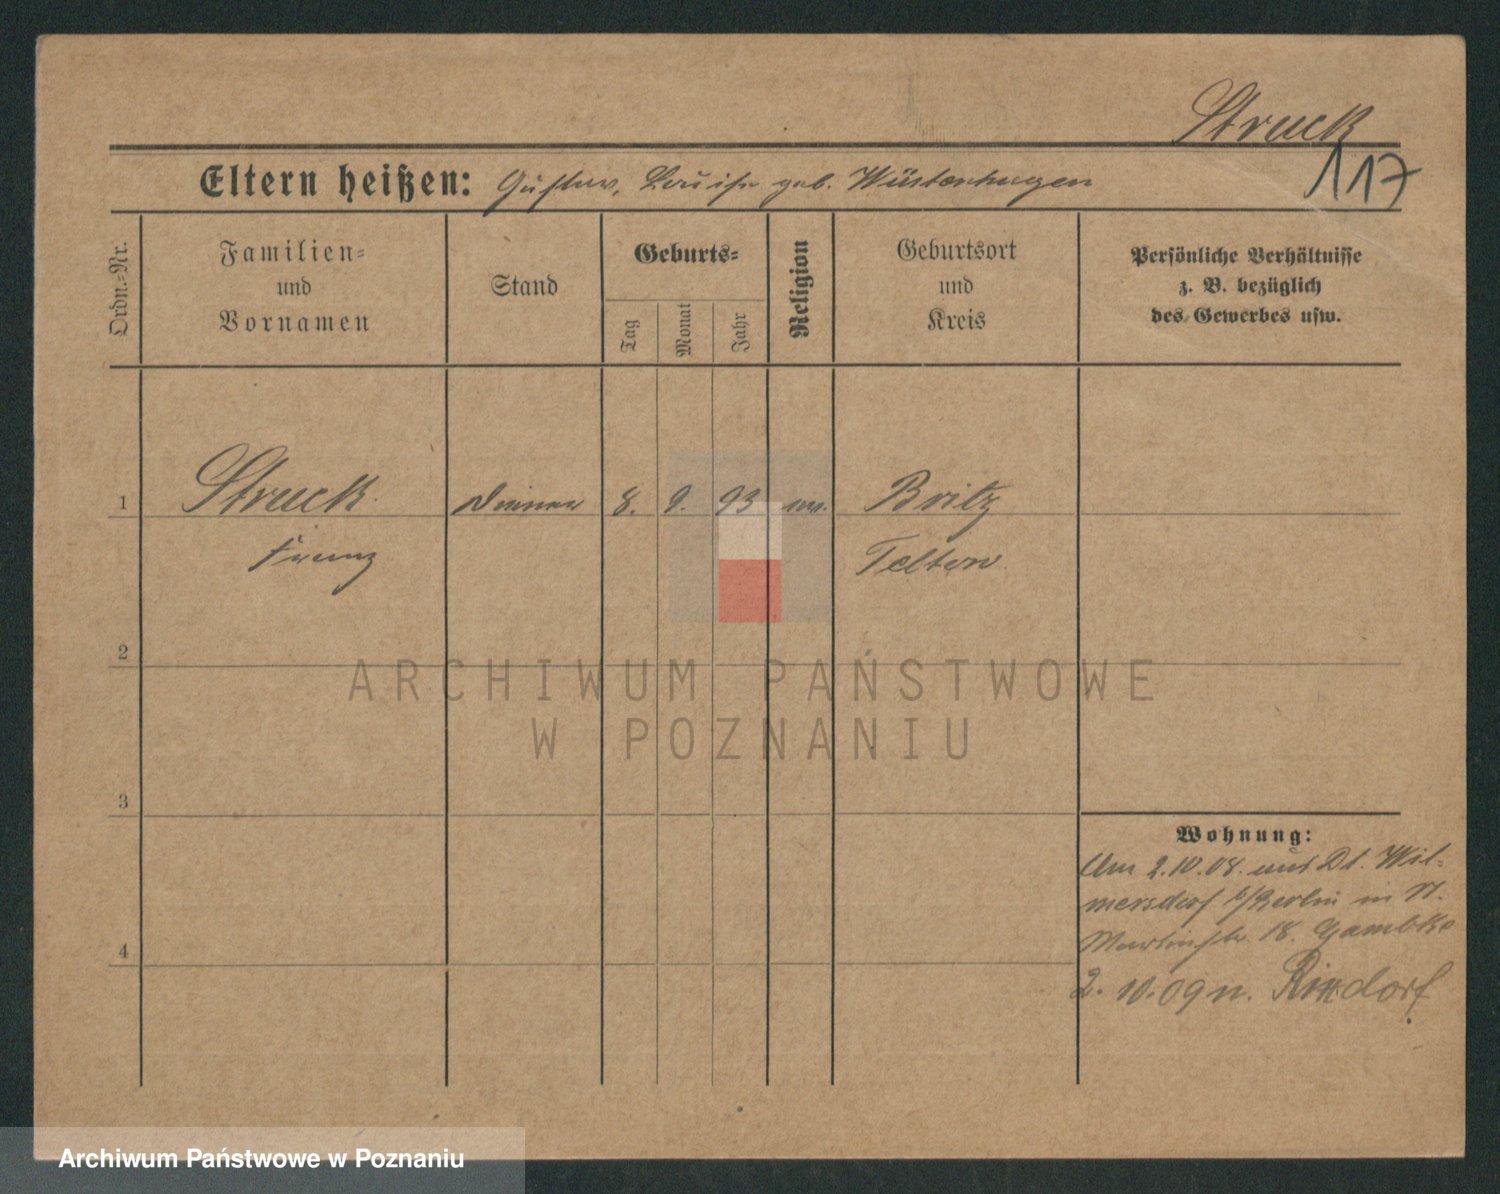 Struck
117
Eltern heißen: Gustav, Louise geb. Wüstenhagen
Ordn.-Nr.
Familien-
und
Vornamen
Stand
Geburts-
Tag
Monat
Jahr
Religion
Geburtsort
und
Kreis
Persönliche Verhältnisse
z. B. bezüglich
des Gewerbes usw.
1 Struck Diener 8. 9. 93 ev. Britz
Franz Teltow
2
3
4
Wohnung:
Am 2.10.08. aus Dt. Wil-
mersdorf b/Berlin in St.
Martinstr. 18.
2.10.09 n. Rixdorf
ARCHIWUM PAŃSTWOWE
W POZNANIU
Archiwum Państwowe w Poznaniu